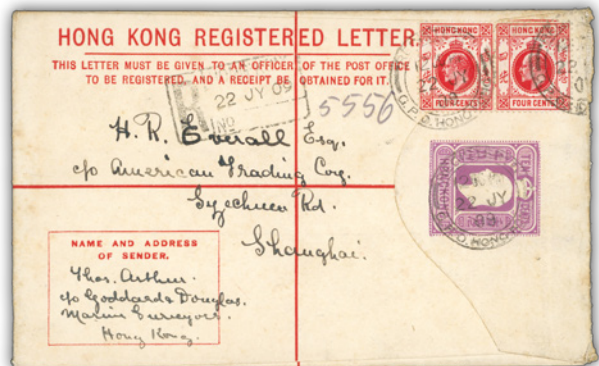 HONG KONG REGISTERED LETTER.
THIS LETTER MUST BE GIVEN TO AN OFFICER OF THE POST OFFICE
TO BE REGISTERED, AND A RECEIPT BE OBTAINED FOR IT.
HONG KONG
FOUR CENTS
HONG KONG
FOUR CENTS
R
22 JY 09
NO
5556
H. R. Everall Esq.
c/o American Trading Coy.
Szechuen Rd.
Shanghai.
TEN CENTS
HONG KONG
22 JY
09
G.P.O. HONG
NAME AND ADDRESS
OF SENDER.
Thos. Arthur.
c/o Goddard & Douglas.
Marine Surveyors.
Hong Kong.